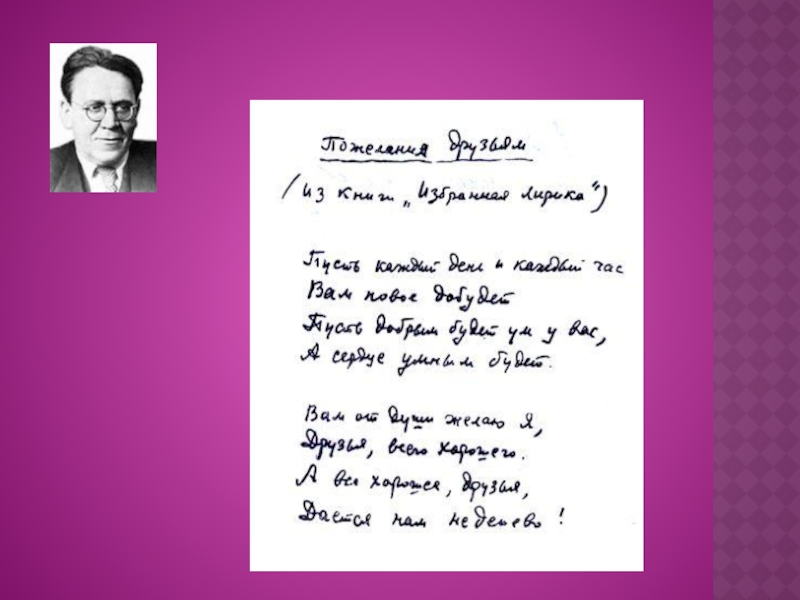 Пожелания друзьям
(из книги „Избранная лирика“)
Пусть каждый день и каждый час
Вам новое добудет
Пусть добрым будет ум у вас,
А сердце умным будет.
Вам от души желаю я,
Друзья, всего хорошего.
А все хорошее, друзья,
Дается нам недешево!